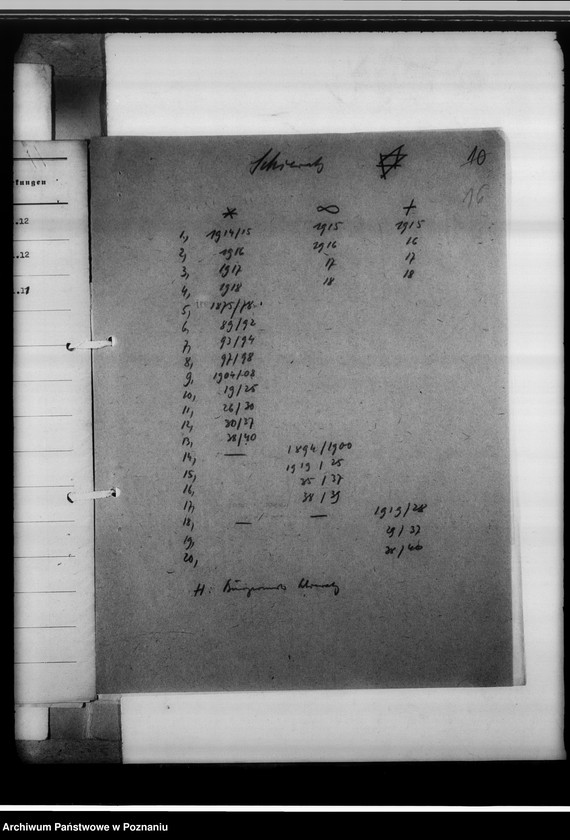 fungen
.12
.12
.11
Schieratz 10
16
* ∞ +
1, 1914/15 1915 1915
2, 1916 1916 16
3, 1917 17 17
4, 1918 18 18
5, 1875/78
6, 89/92
7, 93/94
8, 97/98
9, 1904/08
10, 19/25
11, 26/30
12, 30/37
13, 38/40
14, — 1894/1900
15, 1919/25
16, 25/37
17, 38/39
18, — — 1919/28
19, 29/37
20, 38/40
H:
Archiwum Państwowe w Poznaniu